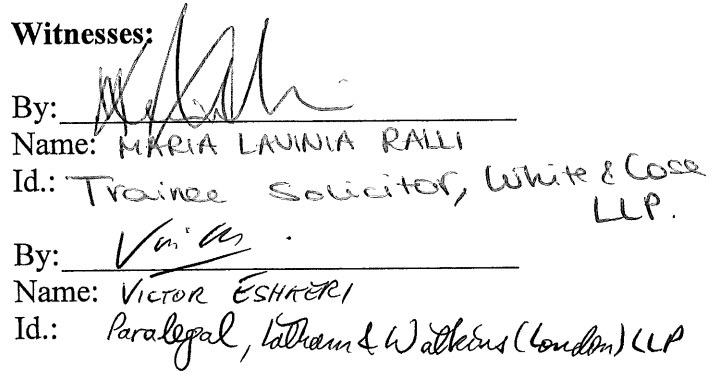 Witnesses:
By:
Name: MARIA LAVINIA RALLI
Id.: Trainee Solicitor, White & Case
LLP.
By:
Name: VICTOR ESHKERI
Id.: Paralegal, Latham & Watkins (London) LLP